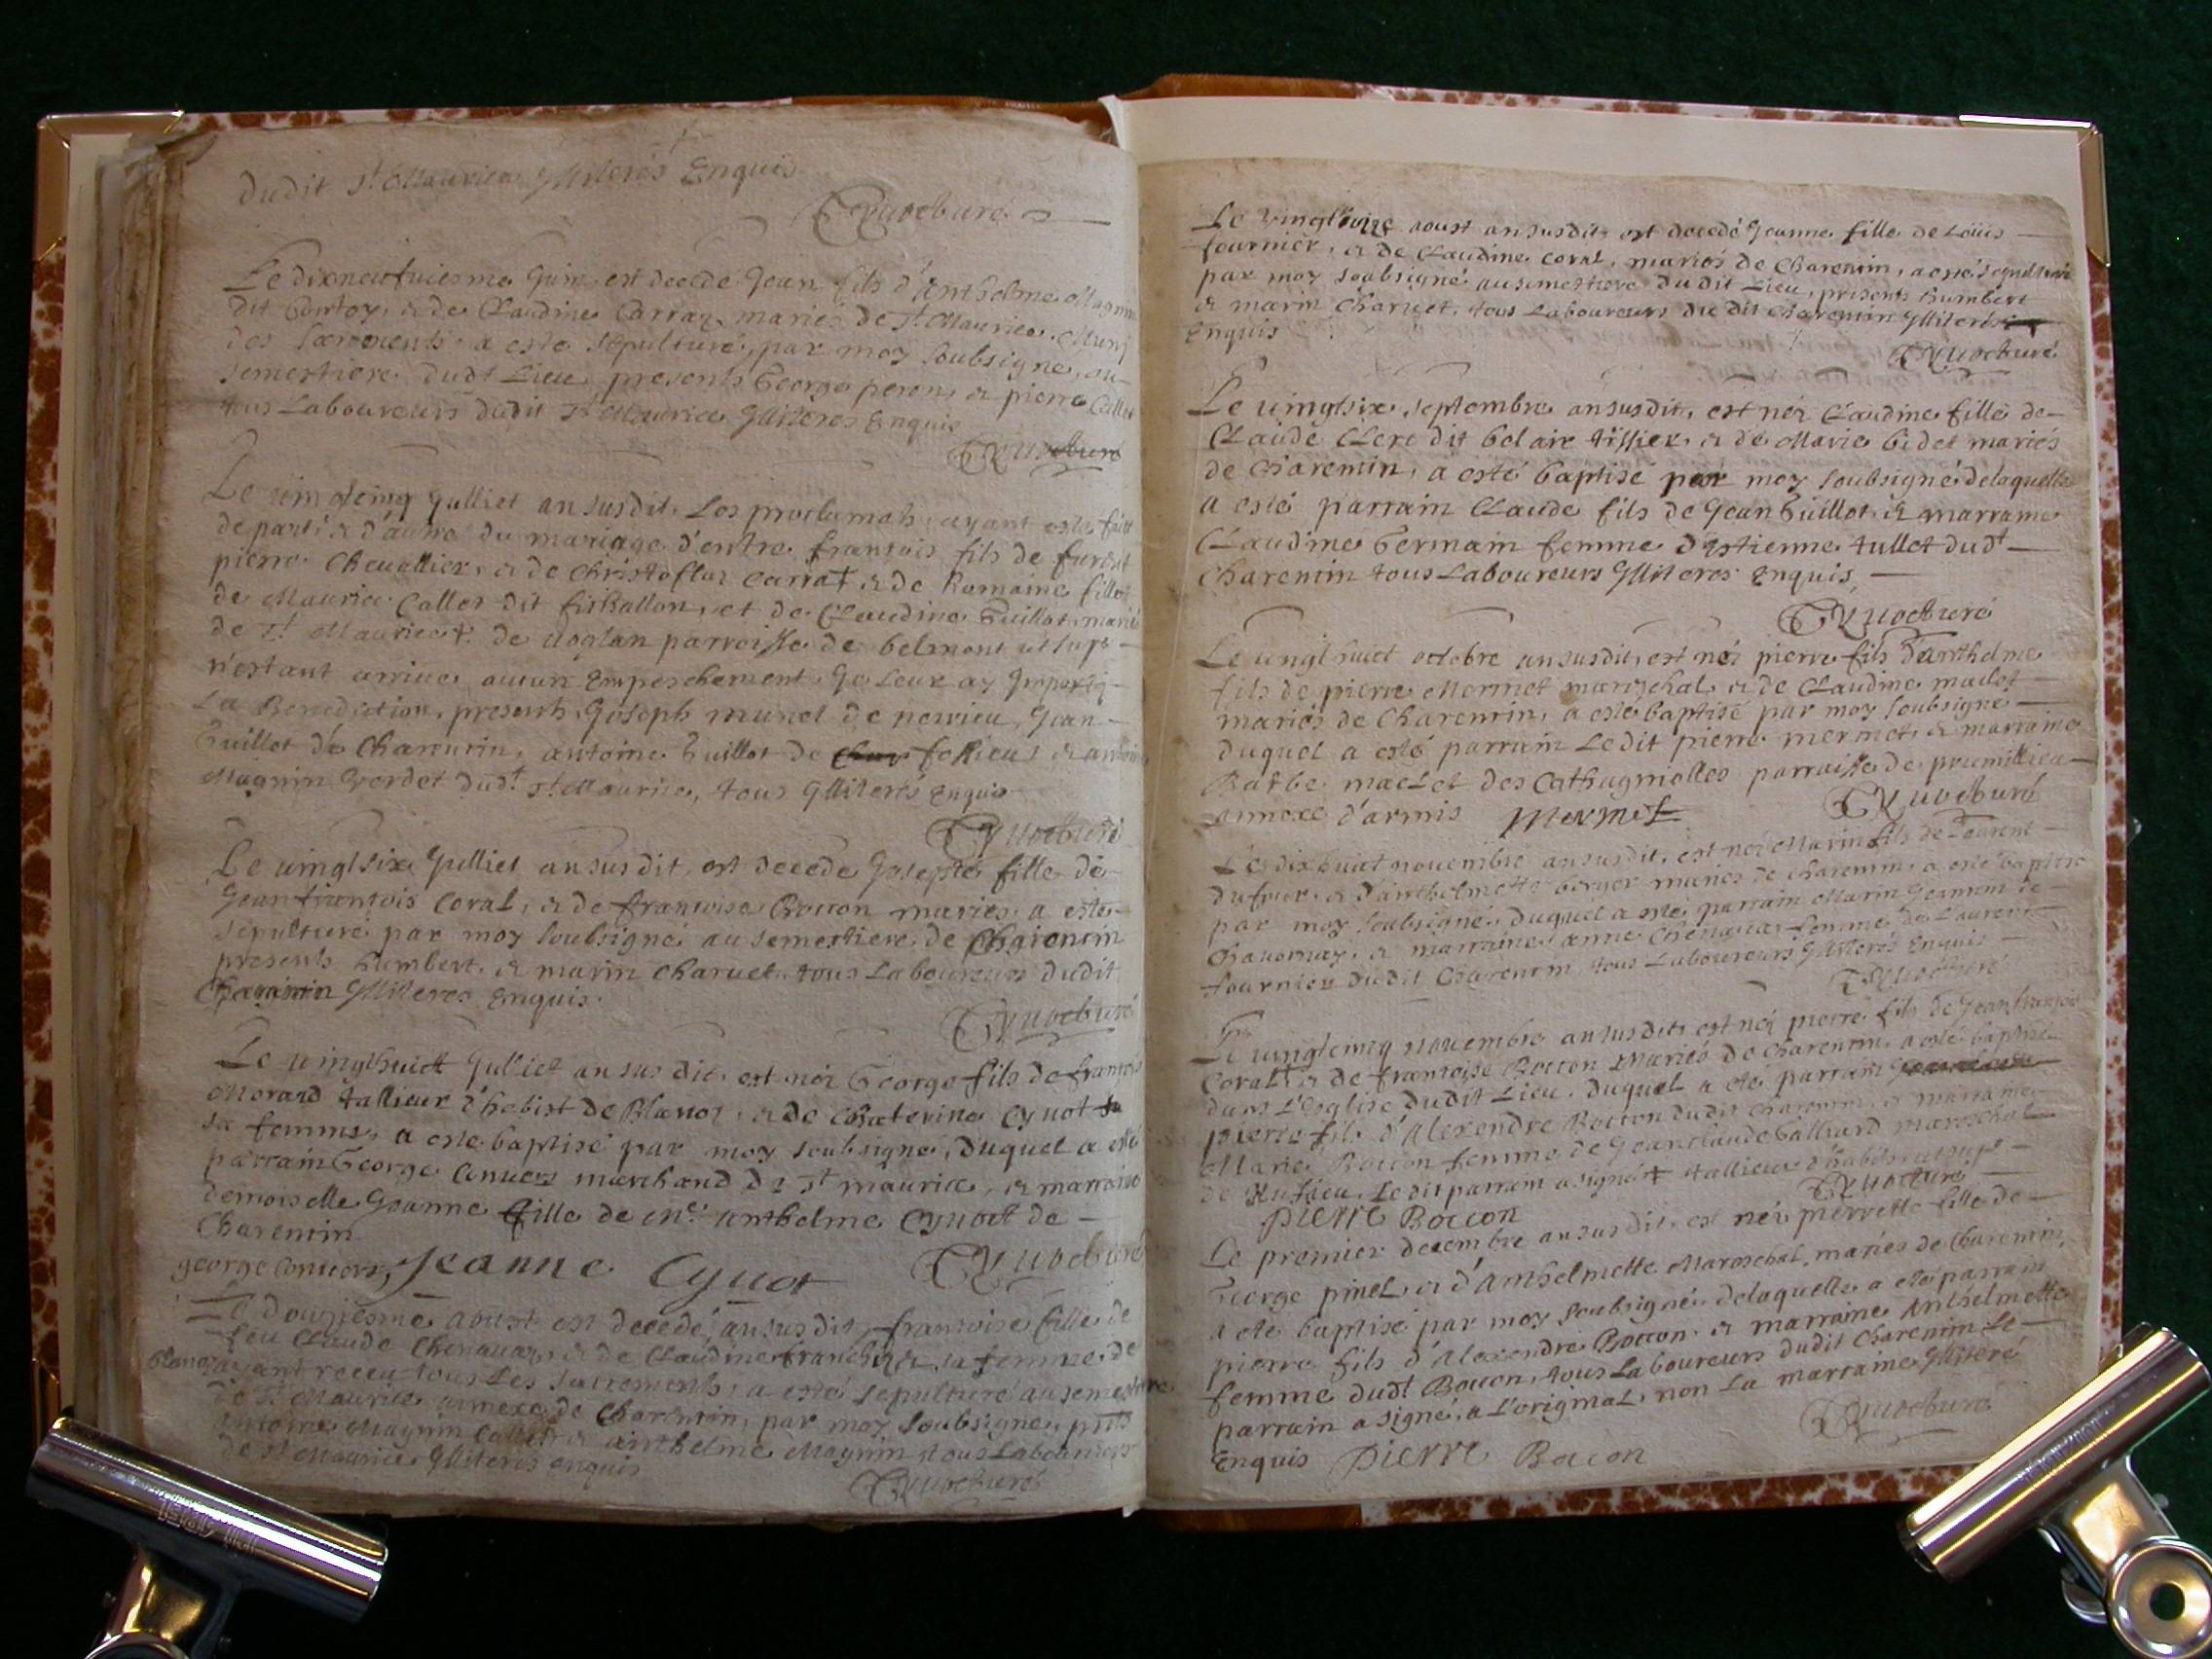 dudit St Maurice Illiterés Enquis
Cyuoct curé
Le dixneufuiesme Juin est decedé Jean fils d'Anthelme Magnin
dit , & de Claudine Carraz mariés de St Maurice. Muny
des Sacrements a esté sepulturé, par moy soubsigné, au
semestiere dudt Lieu presents George peron, & pierre Callet
tous Laboureurs dudit St Maurice Illiteres Enquis
Cyuoct curé
Le vingtcinq Julliet ansusdit, Les proclamats ayant esté faits
de part, & d'autre du mariage d'entre francois fils de furent
pierre Cheuallier, & de Christofla Carrat & de Romaine fille
de Maurice Callet dit , et de Claudine Guillot, mariés
de St Maurice & de uoglan parroisse de belmont ut sup
n'estant arriué aucun Empeschement Je Leur ay Imparty
La Benediction, presents, Joseph munet de perrieu, Jean
Guillot de Charentin, antoine Guillot de fessieu & antoine
Magnin Verdet dudt St Maurice, tous Illiterés Enquis
Cyuoct curé
Le vingtsix Julliet ansusdit, est decedé Josepte fille de
Jeanfrancois Coral, & de francoise Bocon mariés, a esté
sepulturé par moy soubsigné au semestiere de Charentin
presents humbert & marin Charuet tous Laboureurs dudit
Charentin Illiteres Enquis.
Cyuoct curé
Le vingthuict Julliet ansusdit, est néz George fils de francois
Morard tallieur d'habist de Blanoz, & de Chaterine Cyuot sa
sa femme, a esté baptisé par moy soubsigné, duquel a esté
parrain George Conuers marchand de St maurice, & marraine
demoiselle Jeanne fille de Me. anthelme Cyuoct de
Charentin
george Conuers, Jeanne Cyuot Cyuoct curé
Le douziesme Aoust est decedé, ansusdit, francoise fille de
feu Claude Chenauaz, & de Claudine sa femme de
Blanoz ayant receu tous Les sacrements, a esté sepulturé au semestiere
de St Maurice annexe de Charentin, par moy soubsigné, pnts
antoine Magnin Callet & anthelme Magnin tous Laboureurs
de St Maurice Illiterés enquis
Cyuoct curé
Le aoust ansusdit, est decedé Jeanne fille de Loüis
fournier, & de Claudine Coral, mariés de Charentin, a esté sepulturé
par moy soubsigné au semestiere dudit Lieu, presents humbert
& marin Charuet, tous Laboureurs du dit Charentin Illiterés
Enquis
Cyuoct curé
Le vingtsix septembre ansusdit, est néz Claudine fille de
Claude Clerc dit bel air tissier, & de Marie bidet mariés
de Charentin, a esté baptisé par moy soubsigné, de laquelle
a esté parrain Claude fils de Jean Guillot, & marraine
Claudine Germain femme d'Estienne tullet dudt
Charentin tous Laboureurs Illiteres Enquis
Cyuoct curé
Le vingt huict octobre ansusdit, est néz pierre fils d'anthelme
fils de pierre Mermet mareschal, & de Claudine maclet
mariés de Charentin, a esté baptisé par moy soubsigné
duquel a esté parrain Ledit pierre mermet, & marraine
Barbe maclet des Cathagnolles parroisse de prumillieu
annexe d'armis Mermet Cyuoct curé
Le dixhuict nouembre ansusdit, est néz Marin fils de Laurent
dufour, & d'anthelmette berger mariés de Charentin, a esté baptisé
par moy soubsigné, duquel a esté parrain Marin Jeannin de
Chauornay, & marraine anne Chenauaz femme de Laurent
fournier dudit Charentin, tous Laboureurs Illiterés Enquis
Cyuoct curé
Le vingtcinq nouembre ansusdit, est néz pierre fils de Jeanfrancois
Coral & de francoise Bocon Mariés de Charentin, a esté baptisé
dans L'Esglise dudit Lieu, duquel a eté parrain
pierre fils d'Alexendre Bocon dudit Charentin, & marraine
Marie Bocon femme de Jeanclaude Galliard mareschal
de Rufieu, Le dit parrain a signé & tallieur d'habist ut sup
Pierre Bocon Cyuoct curé
Le premier decembre ansusdit, est néz pierrette fille de
George pinel, & d'Anthelmette Mareschal, mariés de Charentin,
a eté baptisé par moy soubsigné, delaquelle a eté parrain
pierre fils d'Alexendre Bocon & marraine Anthelmette
femme dudt Bocon, tous Laboureurs dudit Charentin Le
parrain a signé, a L'original, non La marraine Illiteré
Enquis Pierre Bocon Cyuoct curé